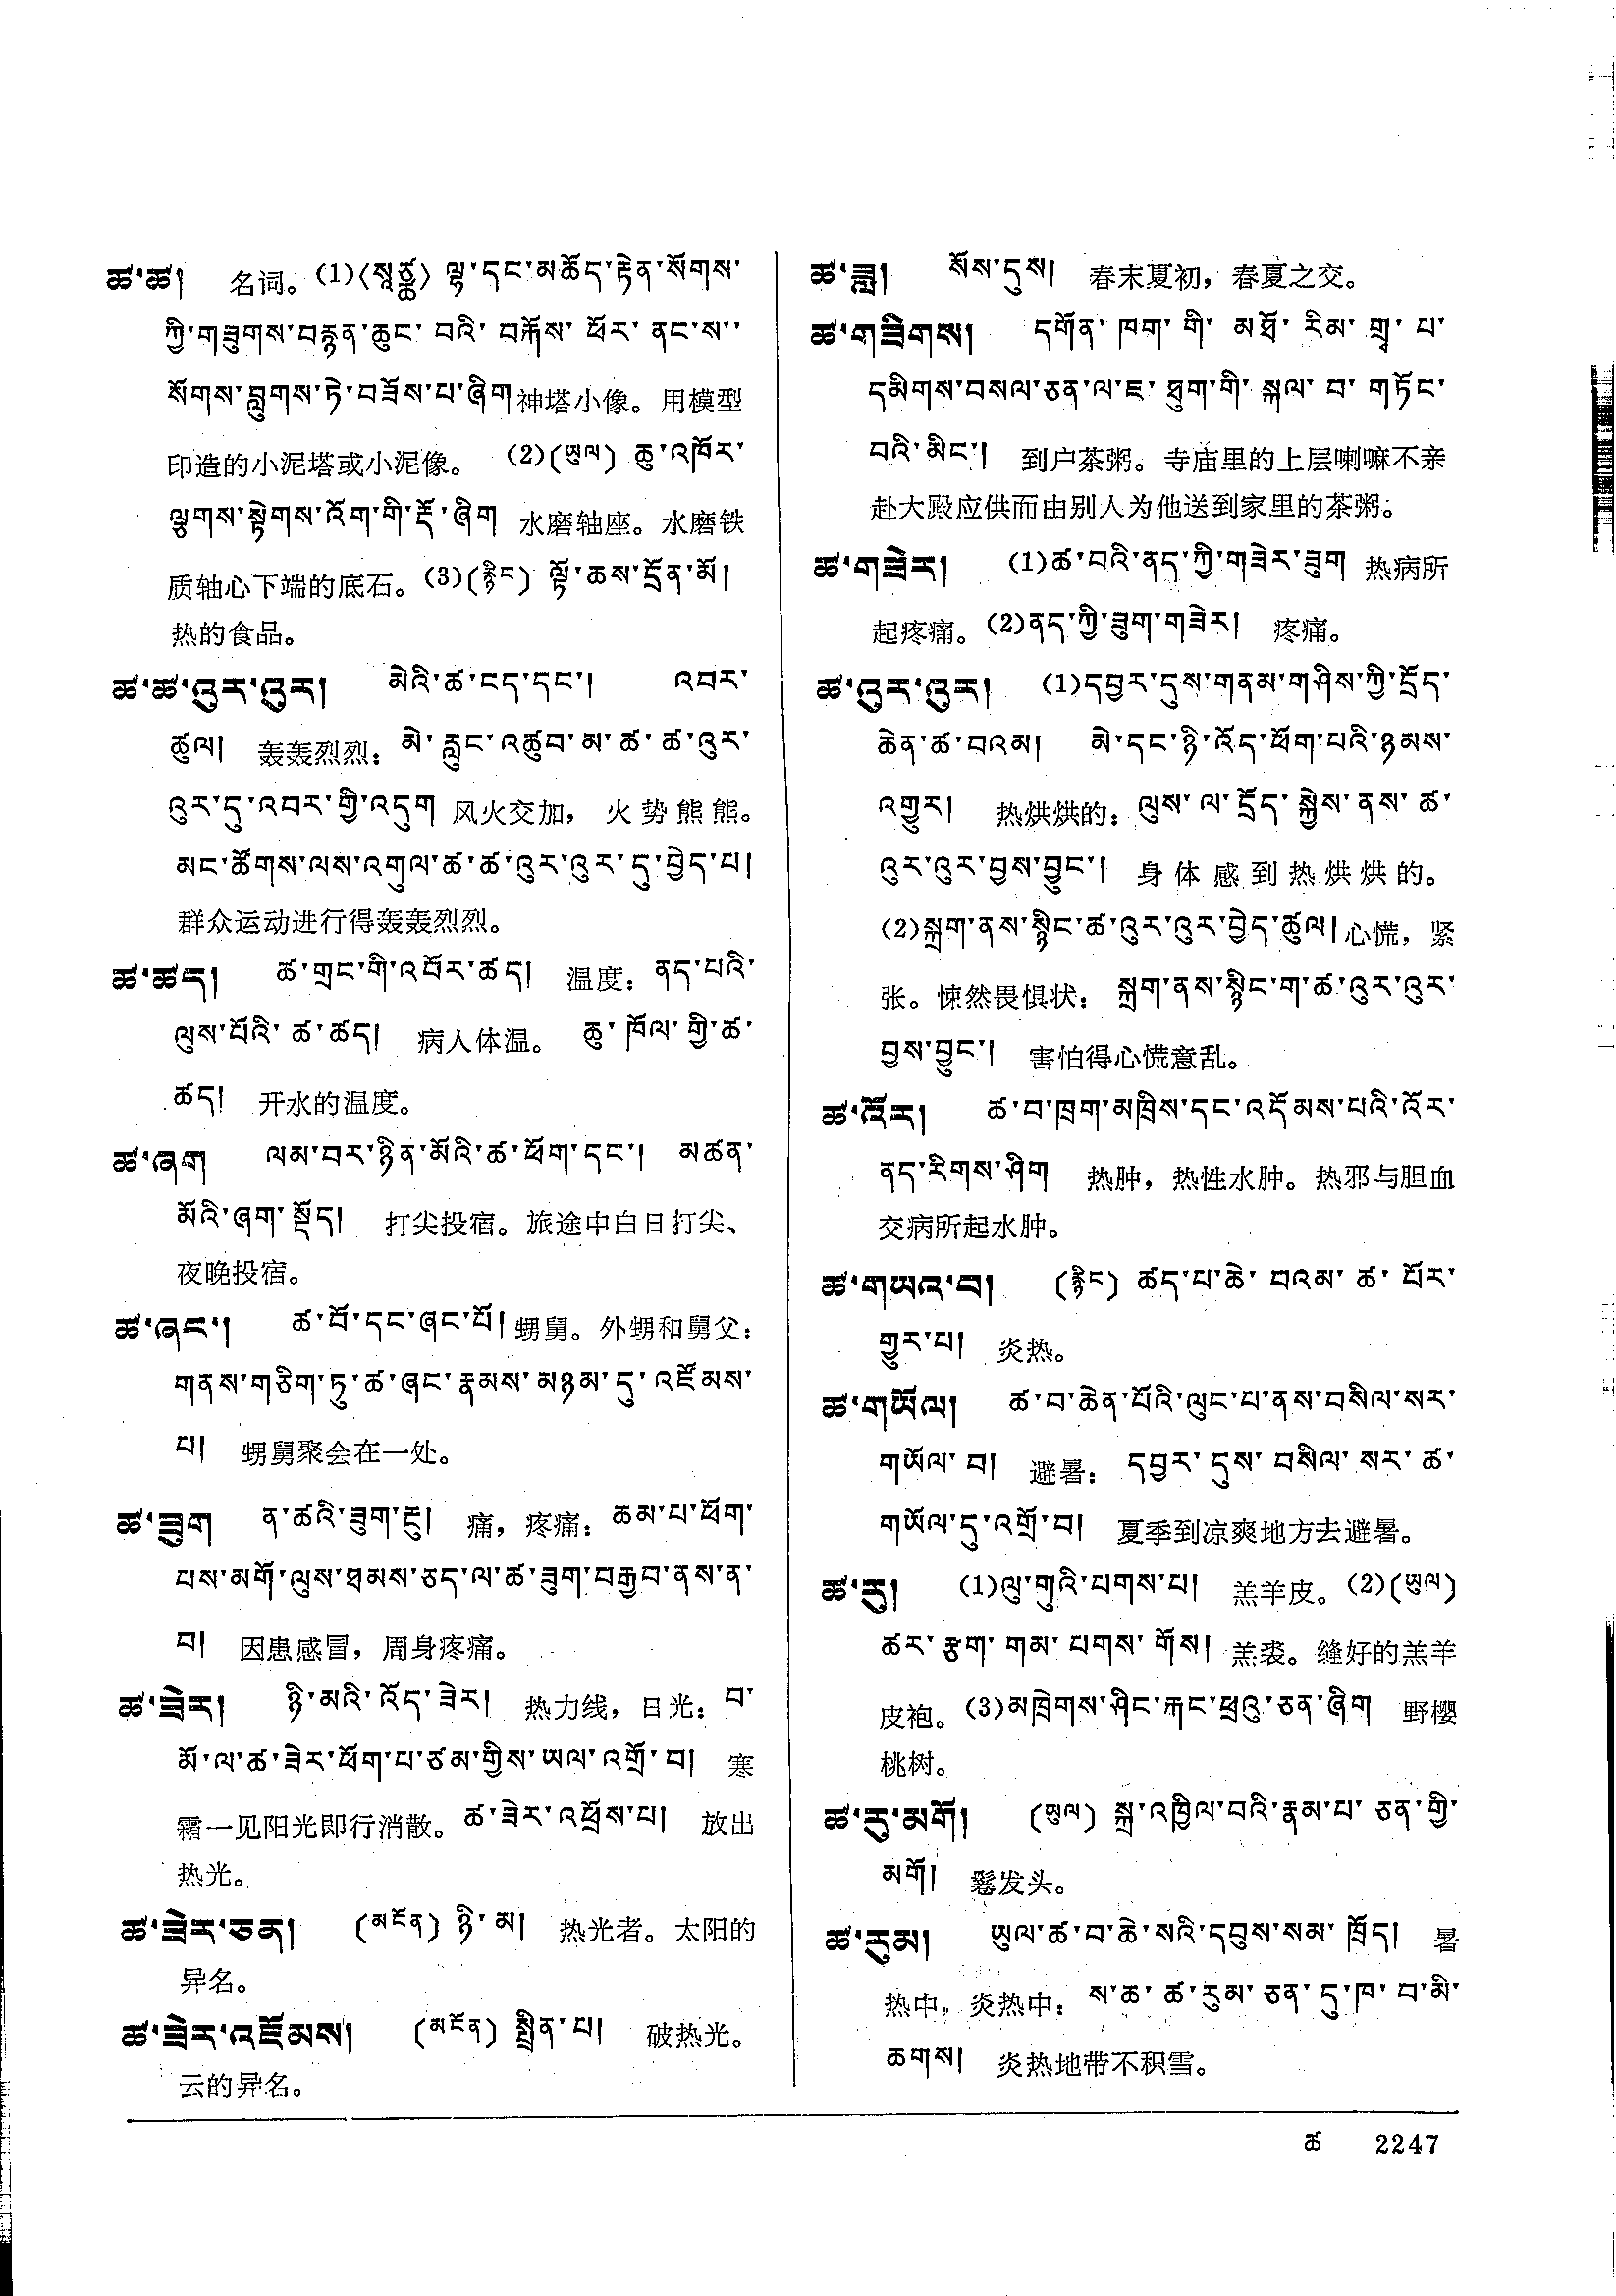 ཚ་ཚ། 名词。(1)〈སཱཙྪ〉 ལྷ་དང་མཆོད་རྟེན་སོགས་
ཀྱི་གཟུགས་བརྙན་ཆུང་ བའི་ བརྐོས་ ཕོར་ ནང་ས་་
སོགས་བླུགས་ཏེ་བཟོས་པ་ཞིག神塔小像。用模型
印造的小泥塔或小泥像。 (2)(ཡུལ) ཆུ་འཁོར་
ལྕགས་སྟེགས་འོག་གི་རྡོ་ཞིག 水磨轴座。水磨铁
质轴心下端的底石。(3)(རྙིང) ལྟོ་ཆས་དྲོན་མོ།
热的食品。
ཚ་ཚ་འུར་འུར། མེའི་ཚ་ངད་དང་། འབར་
ཚུལ། 轰轰烈烈: མེ་ རླུང་འཚུབ་མ་ཚ་ ཚ་འུར་
འུར་དུ་འབར་གྱི་འདུག 风火交加, 火势熊熊。
མང་ཚོགས་ལས་འགུལ་ཚ་ཚ་འུར་འུར་དུ་བྱེད་པ།
群众运动进行得轰轰烈烈。
ཚ་ཚད། ཚ་གྲང་གི་འབོར་ཚད། 温度: ནད་པའི་
ལུས་པོའི་ ཚ་ཚད། 病人体温。 ཆུ་ ཁོལ་ གྱི་ཚ་
ཚད། 开水的温度。
ཚ་ཞག ལམ་བར་ཉིན་མོའི་ཚ་ཕོག་དང་། མཚན་
མོའི་ཞག་ སྡོད། 打尖投宿。旅途中白日打尖、
夜晚投宿。
ཚ་ཞང་། ཚ་བོ་དང་ཞང་པོ། 甥舅。外甥和舅父:
གནས་གཅིག་ཏུ་ཚ་ཞང་རྣམས་མཉམ་དུ་འཛོམས་
པ། 甥舅聚会在一处。
ཚ་ཟུག ན་ཚའི་ཟུག་རྔུ། 痛, 疼痛: ཆམ་པ་ཕོག་
པས་མགོ་ལུས་ཐམས་ཅད་ལ་ཚ་ཟུག་བརྒྱབ་ནས་ན་
བ། 因患感冒, 周身疼痛。
ཚ་ཟེར། ཉི་མའི་འོད་ཟེར། 热力线, 日光: བ་
མོ་ལ་ཚ་ཟེར་ཕོག་པ་ཙམ་གྱིས་ཡལ་འགྲོ་བ། 寒
霜一见阳光即行消散。 ཚ་ཟེར་འཕྲོས་པ། 放出
热光。
ཚ་ཟེར་ཅན། (མངོན) ཉི་མ། 热光者。太阳的
异名。
ཚ་ཟེར་འཇོམས། (མངོན) སྤྲིན་པ། 破热光。
云的异名。
ཚ་ཟླ། སོས་དུས། 春末夏初, 春夏之交。
ཚ་གཟིགས། དགོན་ ཁག་ གི་ མཐོ་ རིམ་ གྲྭ་ པ་
དམིགས་བསལ་ཅན་ལ་ཇ་ ཐུག་གི་ སྐལ་ བ་ གཏོང་
བའི་མིང་། 到户茶粥。寺庙里的上层喇嘛不亲
赴大殿应供而由别人为他送到家里的茶粥。
ཚ་གཟེར། (1)ཚ་བའི་ནད་ཀྱི་གཟེར་ཟུག 热病所
起疼痛。(2)ནད་ཀྱི་ཟུག་གཟེར། 疼痛。
ཚ་འུར་འུར། (1)དབྱར་དུས་གནམ་གཤིས་ཀྱི་དྲོད་
ཆེན་ཚ་བའམ། མེ་དང་ཉི་འོད་ཕོག་པའི་ཉམས་
འགྱུར། 热烘烘的: ལུས་ལ་དྲོད་སྐྱེས་ནས་ཚ་
འུར་འུར་བྱས་བྱུང་། 身体感到热烘烘的。
(2)སྐྲག་ནས་སྙིང་ཚ་འུར་འུར་བྱེད་ཚུལ། 心慌, 紧
张。悚然畏惧状: སྐྲག་ནས་སྙིང་ག་ཚ་འུར་འུར་
བྱས་བྱུང་། 害怕得心慌意乱。
ཚ་འོར། ཚ་བ་ཁྲག་མཁྲིས་དང་འདོམས་པའི་འོར་
ནད་རིགས་ཤིག 热肿, 热性水肿。热邪与胆血
交病所起水肿。
ཚ་གཡའ་བ། (རྙིང) ཚད་པ་ཆེ་ བའམ་ ཚ་ པོར་
གྱུར་པ། 炎热。
ཚ་གཡོལ། ཚ་བ་ཆེན་པོའི་ལུང་པ་ནས་བསིལ་སར་
གཡོལ་ བ། 避暑: དབྱར་ དུས་ བསིལ་ སར་ ཚ་
གཡོལ་དུ་འགྲོ་བ། 夏季到凉爽地方去避暑。
ཚ་རུ། (1)ལུ་གུའི་པགས་པ། 羔羊皮。(2)(ཡུལ)
ཚར་ རྩག་ གམ་ པགས་ གོས། 羔裘。缝好的羔羊
皮袍。(3)མཁྲེགས་ཤིང་རྐང་ཕྲའུ་ཅན་ཞིག 野樱
桃树。
ཚ་རུ་མགོ། (ཡུལ) སྐྲ་འཁྱིལ་བའི་རྣམ་པ་ ཅན་གྱི་
མགོ། 鬈发头。
ཚ་རུམ། ཡུལ་ཚ་བ་ཆེ་སའི་དབུས་སམ་ ཁྲོད། 暑
热中, 炎热中: ས་ཆ་ ཚ་རུམ་ ཅན་ དུ་ཁ་ བ་མི་
ཆགས། 炎热地带不积雪。
ཚ 2247